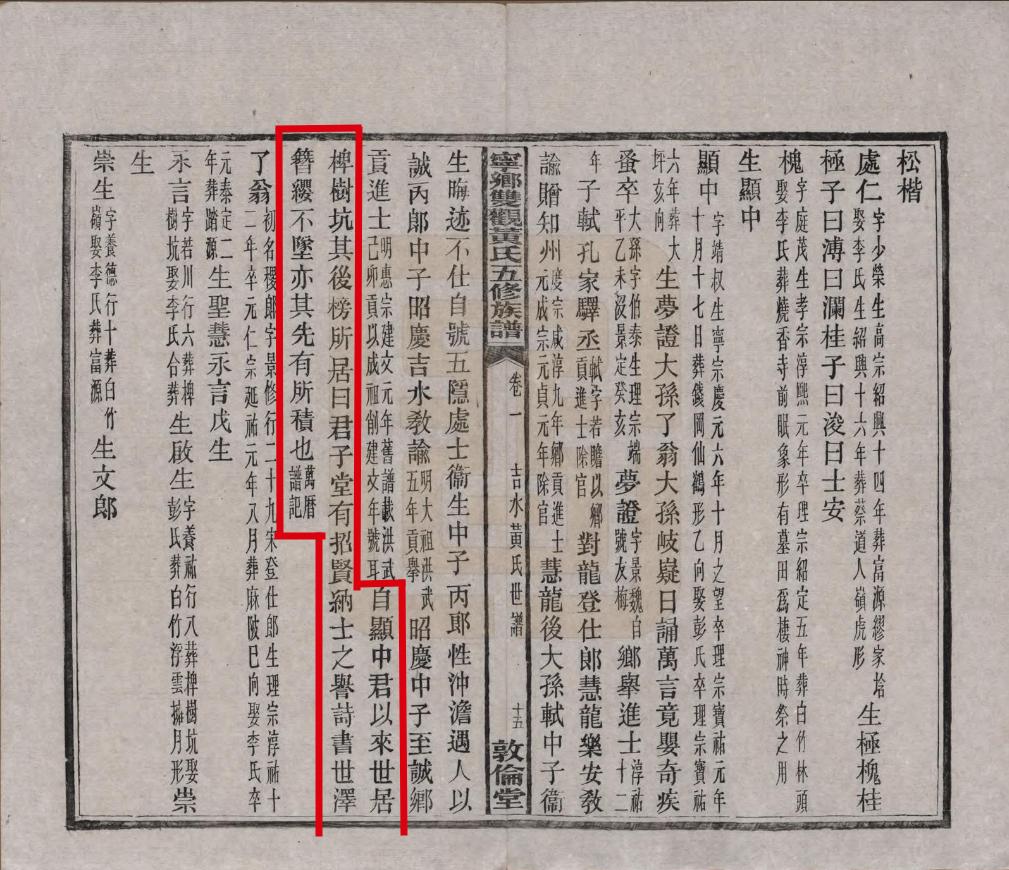 松楷
處仁字少榮生高宗紹興十四年葬富源繆家垱娶李氏生紹興十六年葬蔡道人嶺虎形生極槐桂
極子曰溥曰瀾桂子曰浚曰士安
槐字庭茂生孝宗淳熙元年卒理宗紹定五年葬白竹林頭娶李氏葬燒香寺前眠象形有墓田爲棲神時祭之用
生顯中
顯中字靖叔生寧宗慶元六年十月之望卒理宗寶祐元年十月十七日葬鐵岡仙鶴形乙向娶彭氏卒理宗寶祐
六年葬大坪亥向生夢證大孫了翁大孫岐嶷日誦萬言竟嬰奇疾
蚤卒大孫字伯泰生理宗端平乙未沒景定癸亥夢證字景魏自號友梅鄉舉進士淳祐十二
年子軾孔家驛丞軾字若瞻以鄉貢進士除官對龍登仕郎慧龍樂安教
諭贈知州度宗咸淳九年鄉貢進士元成宗元貞元年除官慧龍後大孫軾中子衞
寧鄉雙觀黃氏五修族譜
卷一
吉水黃氏世譜
十五
敦倫堂
生晦迹不仕自號五隱處士衞生中子丙郎性沖澹遇人以
誠丙郎中子昭慶吉水敎諭明大祖洪武五年貢舉昭慶中子至誠鄉
貢進士明惠宗建文元年舊譜載洪武己卯貢以成祖削建文年號耳自顯中君以來世居
椑樹坑其後榜所居曰君子堂有招賢納士之譽詩書世澤
簪纓不墜亦其先有所積也萬曆譜記
了翁初名稷郎字景修行二十九宋登仕郎生理宗淳祐十二年卒元仁宗延祐元年八月葬麻陂巳向娶李氏卒
元泰定二年葬踏源生聖慧永言戊生
永言字若川行六葬椑樹坑娶李氏合葬生啟生字養祐行八葬椑樹坑娶彭氏葬白竹浮雲擁月形崇
生
崇生字養德行十葬白竹嶺娶李氏葬富源生文郎